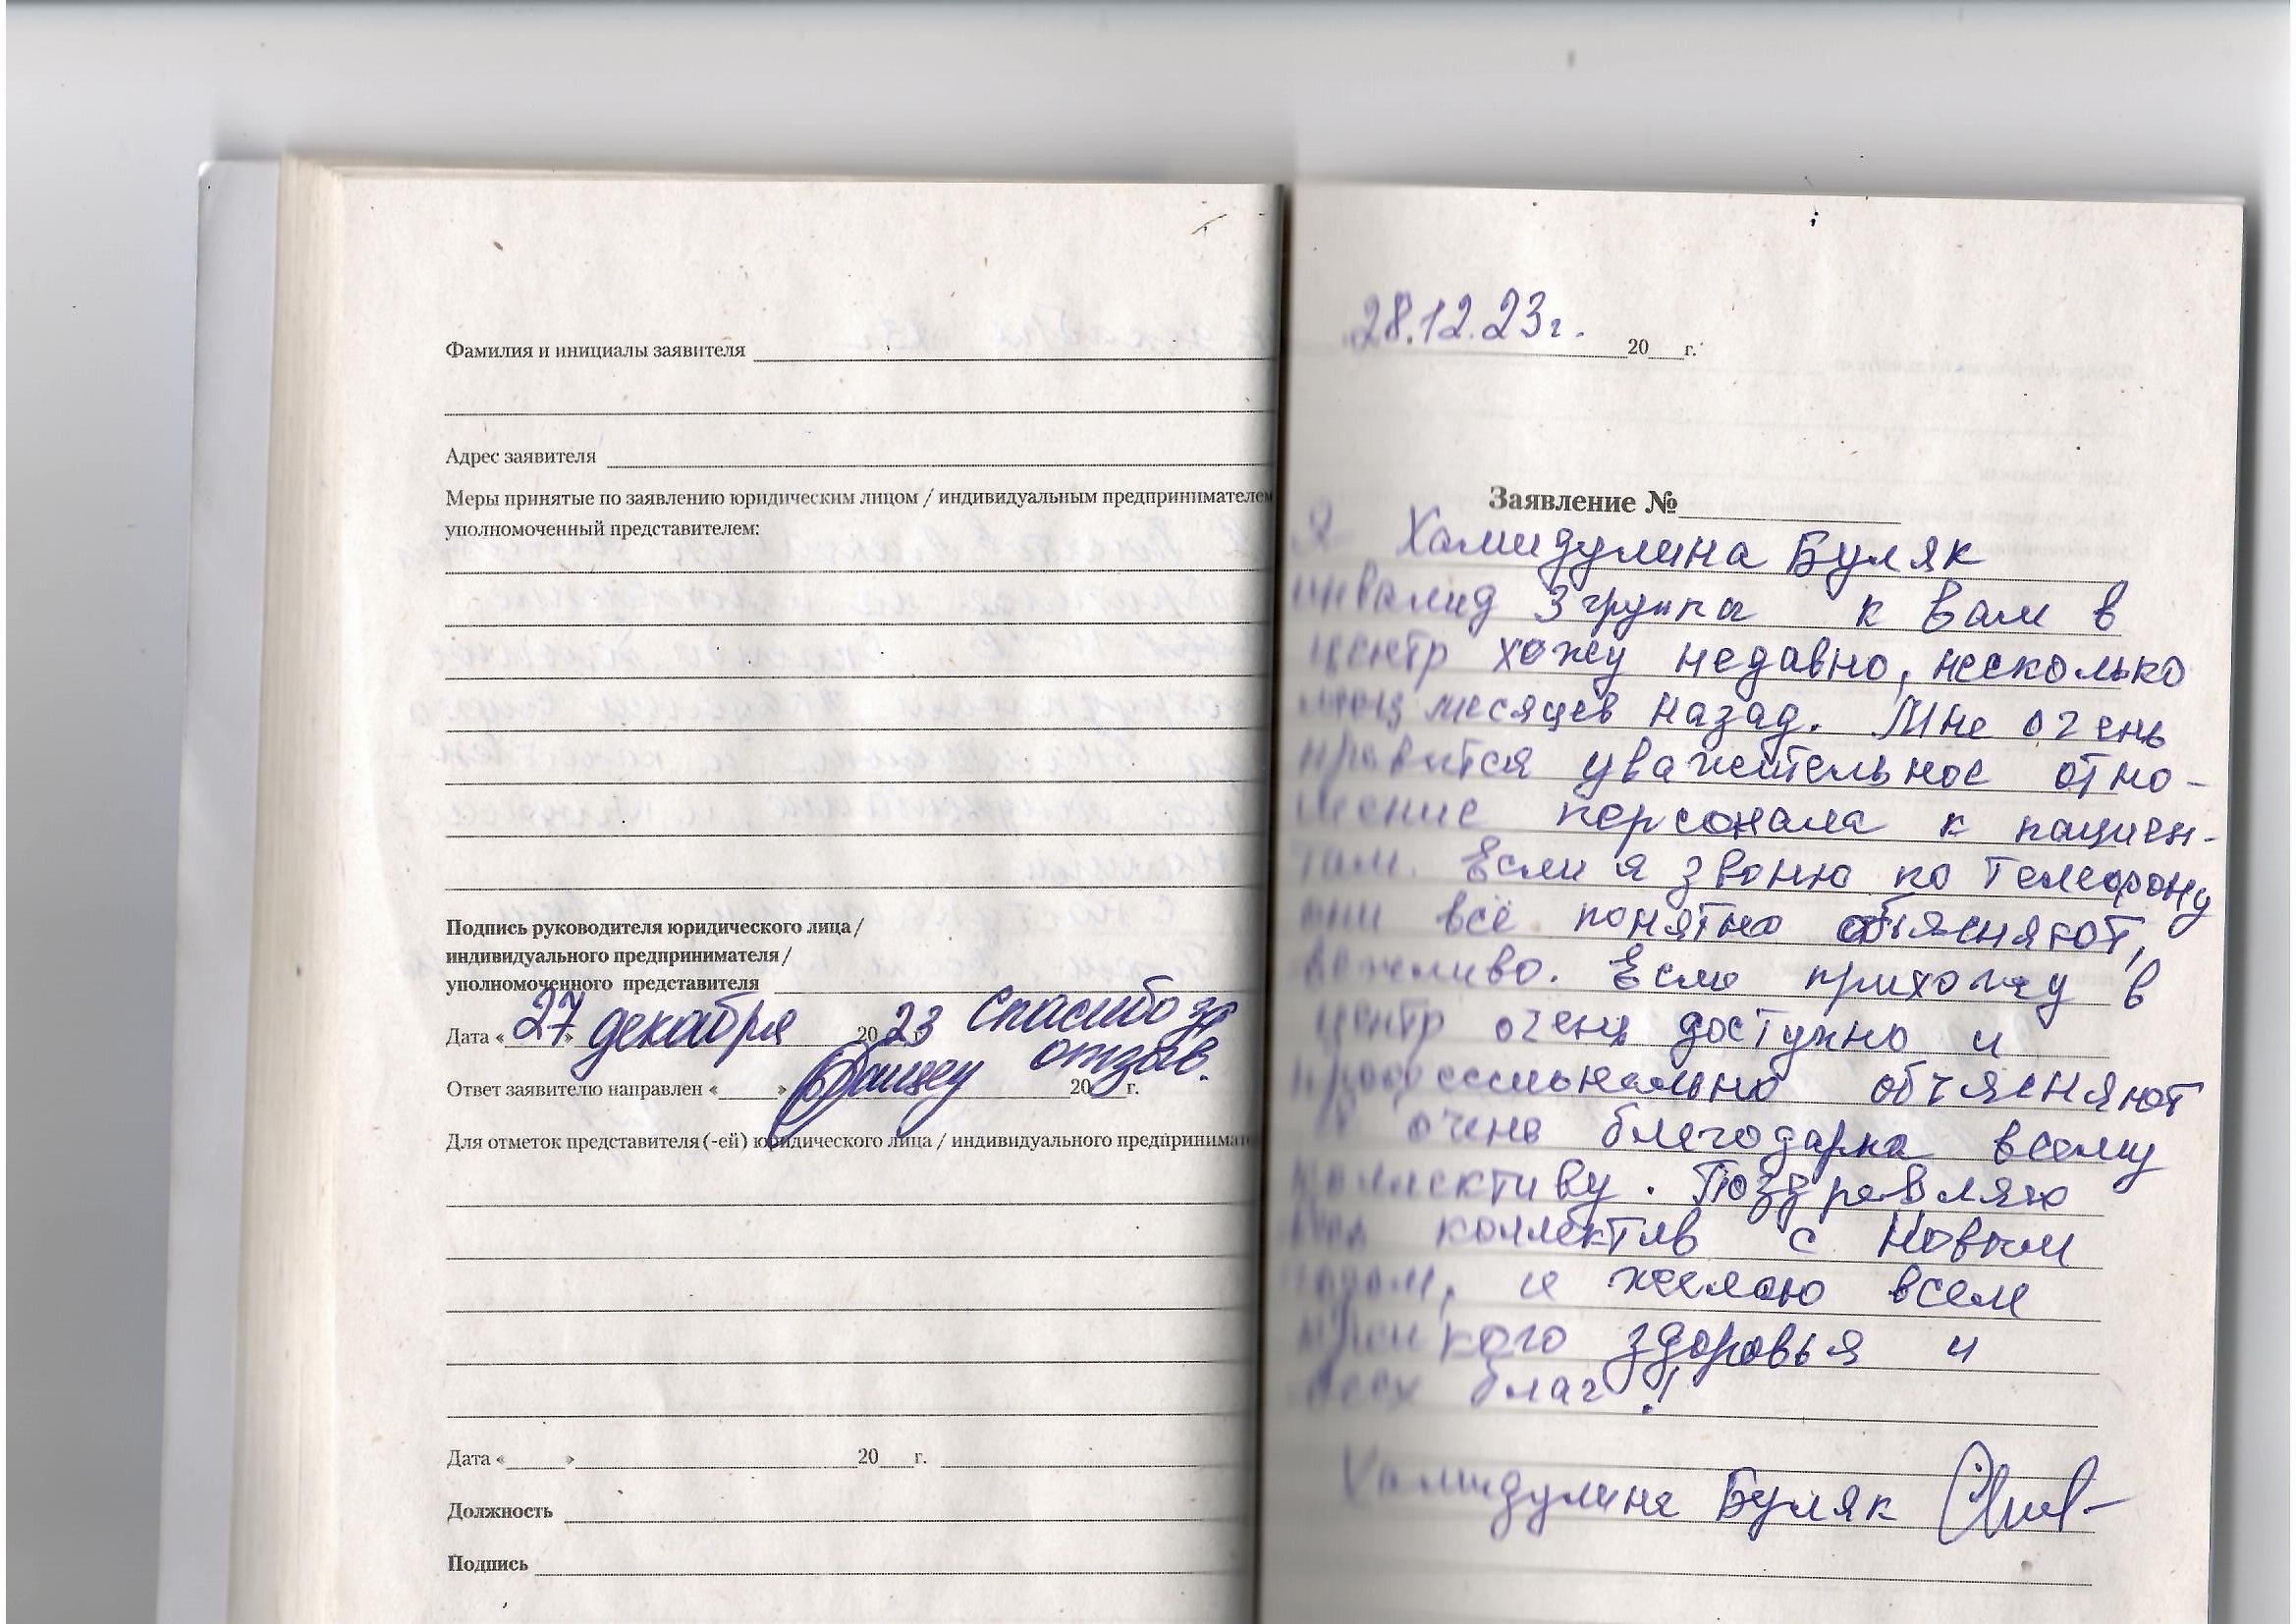 Фамилия и инициалы заявителя
Адрес заявителя
Меры принятые по заявлению юридическим лицом / индивидуальным предпринимателем
уполномоченный представителем:
Подпись руководителя юридического лица /
индивидуального предпринимателя /
уполномоченного представителя
Дата « 27 » декабря 20 23 г. Спасибо за
отзыв.
Ответ заявителю направлен « » 20 г.
Для отметок представителя (-ей) юридического лица / индивидуального предпринимат
Дата « » 20 г.
Должность
Подпись
28.12.23г. 20 г.
Заявление №
Я Хамидулина Буляк
инвалид 3 группа к вам в
центр хожу недавно, несколько
месяцев назад. Мне очень
нравится уважительное отно-
шение персонала к пациен-
там. Если я звоню по телефону
они всё понятно объясняют,
вежливо. Если прихожу в
центр очень доступно и
профессионально объясняют
Я очень благодарна всему
коллективу. Поздравляю
весь коллектив с Новым
годом, и желаю всем
крепкого здоровья и
всех благ!
Хамидулина Буляк